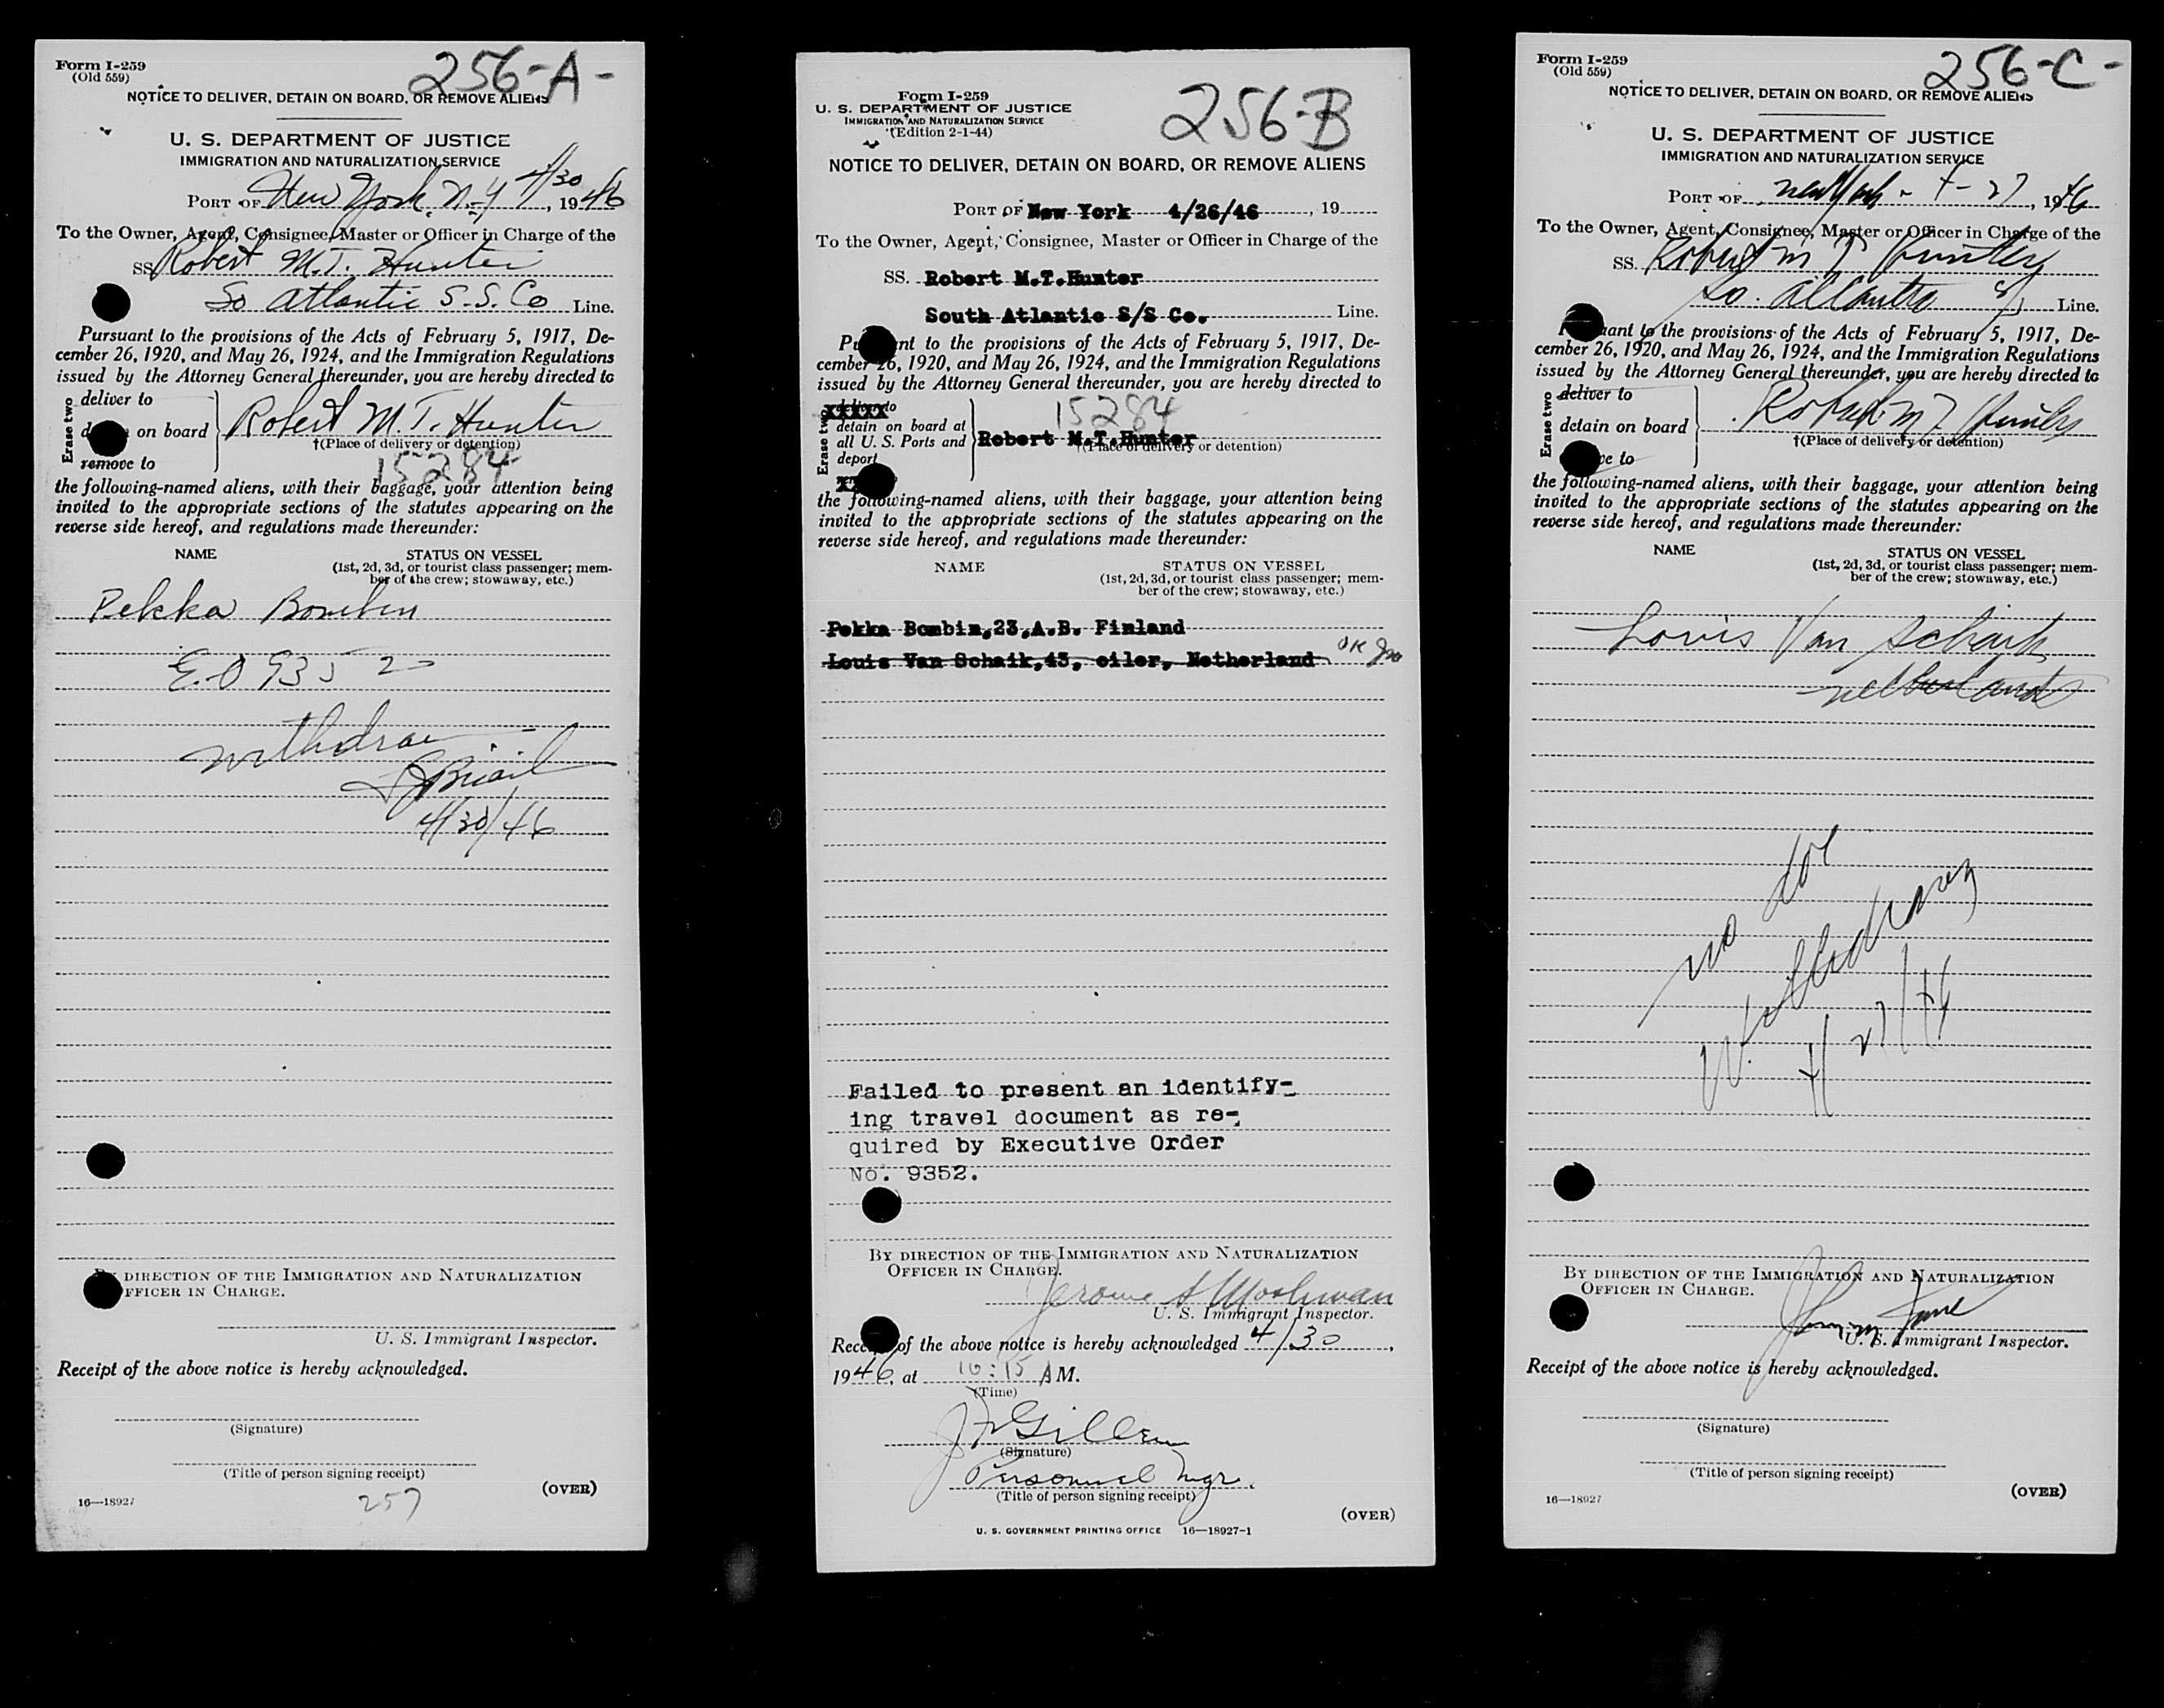 Form I-259
(Old 559)
256-A-
NOTICE TO DELIVER, DETAIN ON BOARD, OR REMOVE ALIENS
U. S. DEPARTMENT OF JUSTICE
IMMIGRATION AND NATURALIZATION SERVICE
PORT OF New York, N.Y 4/30, 1946
To the Owner, Agent, Consignee, Master or Officer in Charge of the
SS Robert M.T. Hunter
So Atlantic S.S. Co Line.
Pursuant to the provisions of the Acts of February 5, 1917, De-
cember 26, 1920, and May 26, 1924, and the Immigration Regulations
issued by the Attorney General thereunder, you are hereby directed to
Erase two
deliver to
on board
remove to
Robert M.T. Hunter
†(Place of delivery or detention)
15284
the following-named aliens, with their baggage, your attention being
invited to the appropriate sections of the statutes appearing on the
reverse side hereof, and regulations made thereunder:
NAME STATUS ON VESSEL
(1st, 2d, 3d, or tourist class passenger; mem-
ber of the crew; stowaway, etc.)
Pekka Bombin
E.O 9352
withdraw
4/30/46
DIRECTION OF THE IMMIGRATION AND NATURALIZATION
FFICER IN CHARGE.
U. S. Immigrant Inspector.
Receipt of the above notice is hereby acknowledged.
(Signature)
(Title of person signing receipt)
(OVER)
16—18927
257
Form I-259
U. S. DEPARTMENT OF JUSTICE
IMMIGRATION AND NATURALIZATION SERVICE
(Edition 2-1-44)
256-B
NOTICE TO DELIVER, DETAIN ON BOARD, OR REMOVE ALIENS
PORT OF New York 4/26/46, 19
To the Owner, Agent, Consignee, Master or Officer in Charge of the
SS. Robert M.T.Hunter
South Atlantic S/S Co. Line.
Pu nt to the provisions of the Acts of February 5, 1917, De-
cember 26, 1920, and May 26, 1924, and the Immigration Regulations
issued by the Attorney General thereunder, you are hereby directed to
Erase two
deliver to
detain on board at
all U. S. Ports and
deport
15284
Robert M.T.Hunter
†(Place of delivery or detention)
the following-named aliens, with their baggage, your attention being
invited to the appropriate sections of the statutes appearing on the
reverse side hereof, and regulations made thereunder:
NAME STATUS ON VESSEL
(1st, 2d, 3d, or tourist class passenger; mem-
ber of the crew; stowaway, etc.)
Pekka Bombin,23,A.B. Finland
Louis Van Schaik,43, oiler, Netherland OK
Failed to present an identify-
ing travel document as re-
quired by Executive Order
No. 9352.
BY DIRECTION OF THE IMMIGRATION AND NATURALIZATION
OFFICER IN CHARGE.
U. S. Immigrant Inspector.
Rece of the above notice is hereby acknowledged 4/30,
1946, at 10:15 AM.
(Time)
(Signature)
Personnel Mgr.
(Title of person signing receipt)
(OVER)
U. S. GOVERNMENT PRINTING OFFICE 16—18927-1
Form I-259
(Old 559)
256-C-
NOTICE TO DELIVER, DETAIN ON BOARD, OR REMOVE ALIENS
U. S. DEPARTMENT OF JUSTICE
IMMIGRATION AND NATURALIZATION SERVICE
PORT OF New York - 4-27, 1946
To the Owner, Agent, Consignee, Master or Officer in Charge of the
SS. Robert M T Hunter
So. Atlantic Line.
ant to the provisions of the Acts of February 5, 1917, De-
cember 26, 1920, and May 26, 1924, and the Immigration Regulations
issued by the Attorney General thereunder, you are hereby directed to
Erase two
deliver to
detain on board
ve to
Robert M T Hunter
†(Place of delivery or detention)
the following-named aliens, with their baggage, your attention being
invited to the appropriate sections of the statutes appearing on the
reverse side hereof, and regulations made thereunder:
NAME STATUS ON VESSEL
(1st, 2d, 3d, or tourist class passenger; mem-
ber of the crew; stowaway, etc.)
Louis Van Schaik
Netherlands
no
Withdrawn
4/27/46
BY DIRECTION OF THE IMMIGRATION AND NATURALIZATION
OFFICER IN CHARGE.
U. S. Immigrant Inspector.
Receipt of the above notice is hereby acknowledged.
(Signature)
(Title of person signing receipt)
(OVER)
16—18927